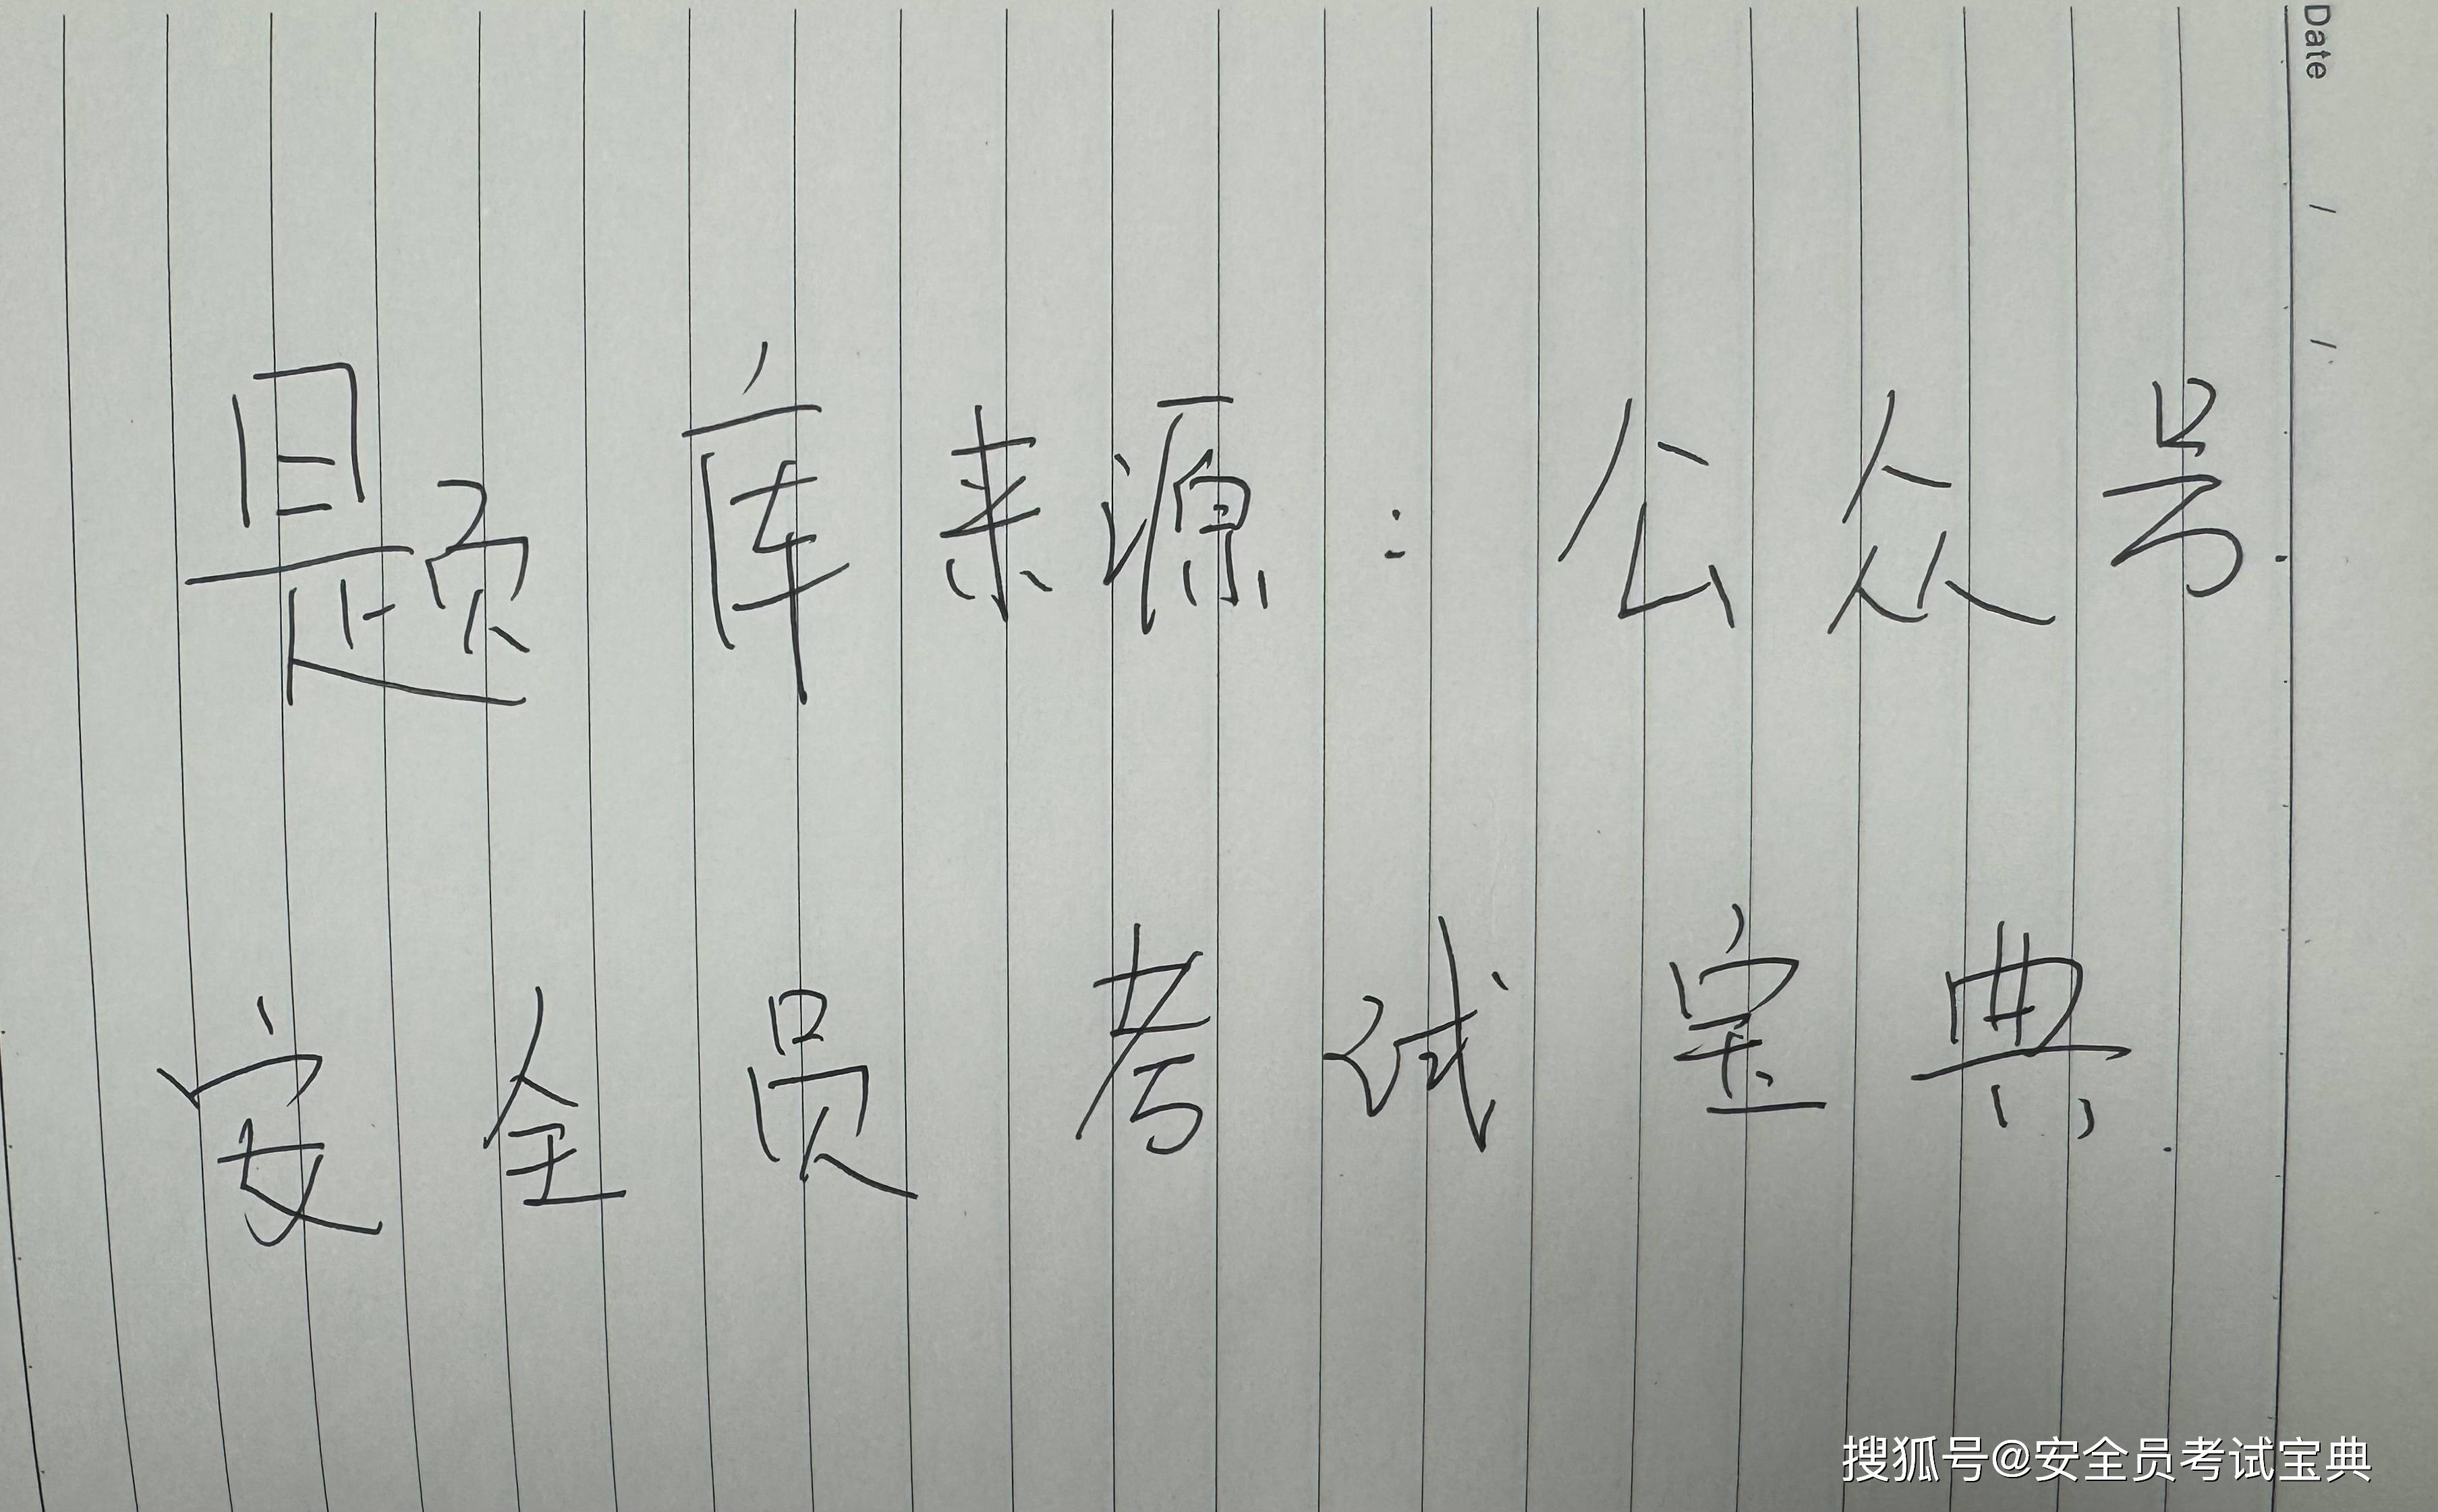 Date / /
题库来源：公众号.
安全员考试宝典.
搜狐号@安全员考试宝典